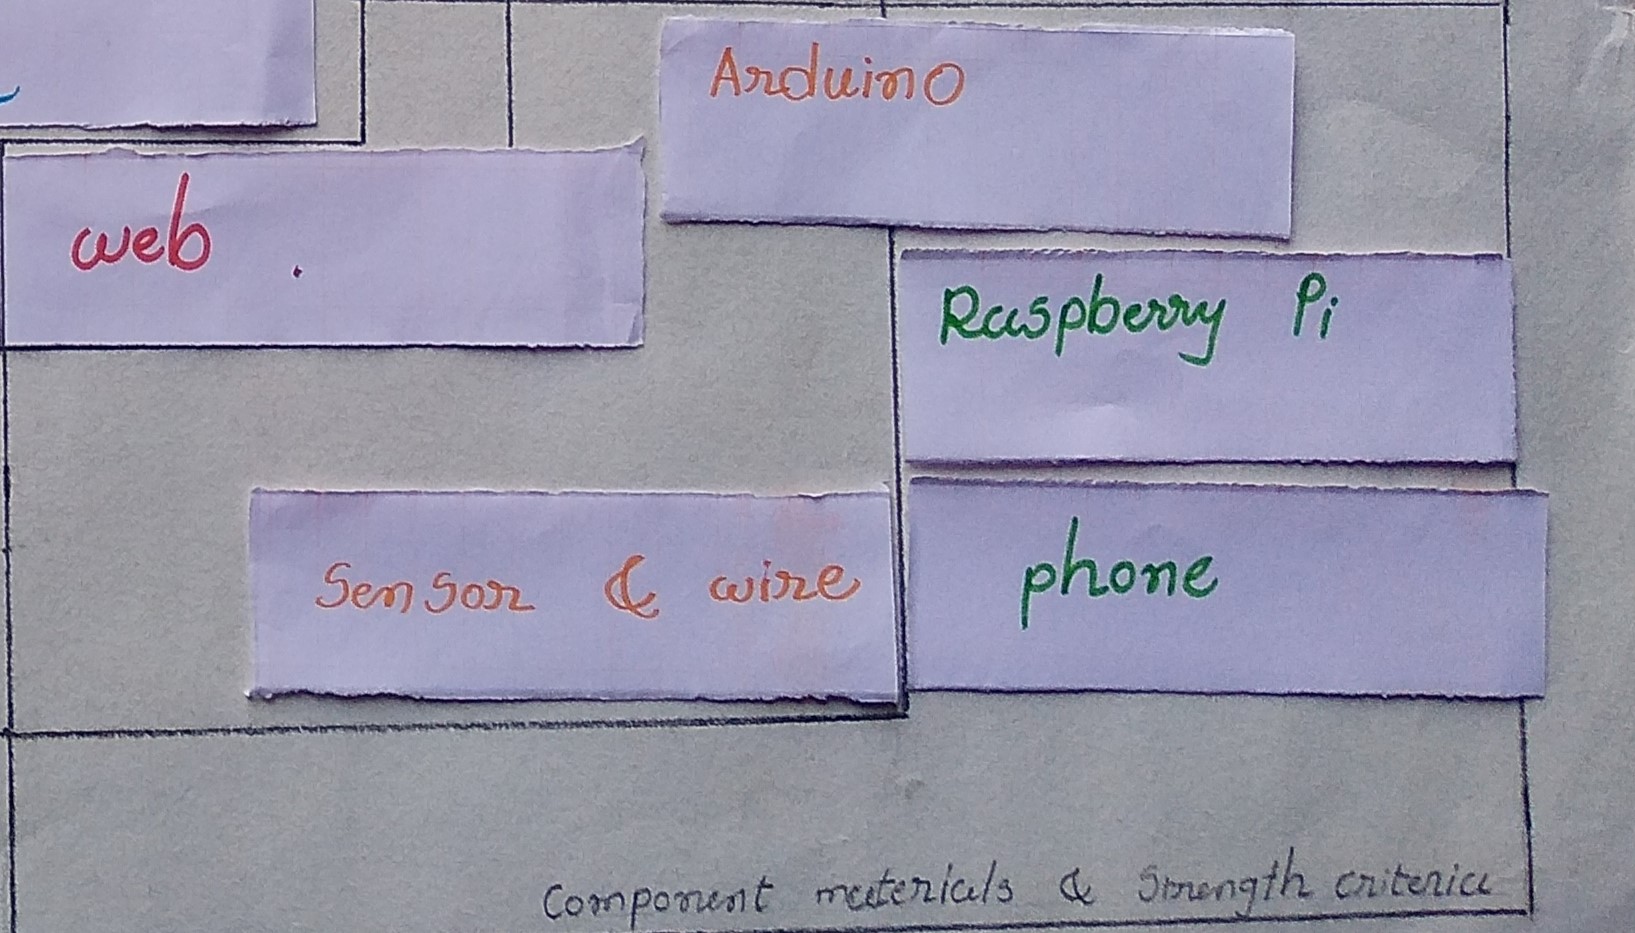 Arduino
web .
Raspberry Pi
Sensor & wire
phone
Component materials & Strength criteria